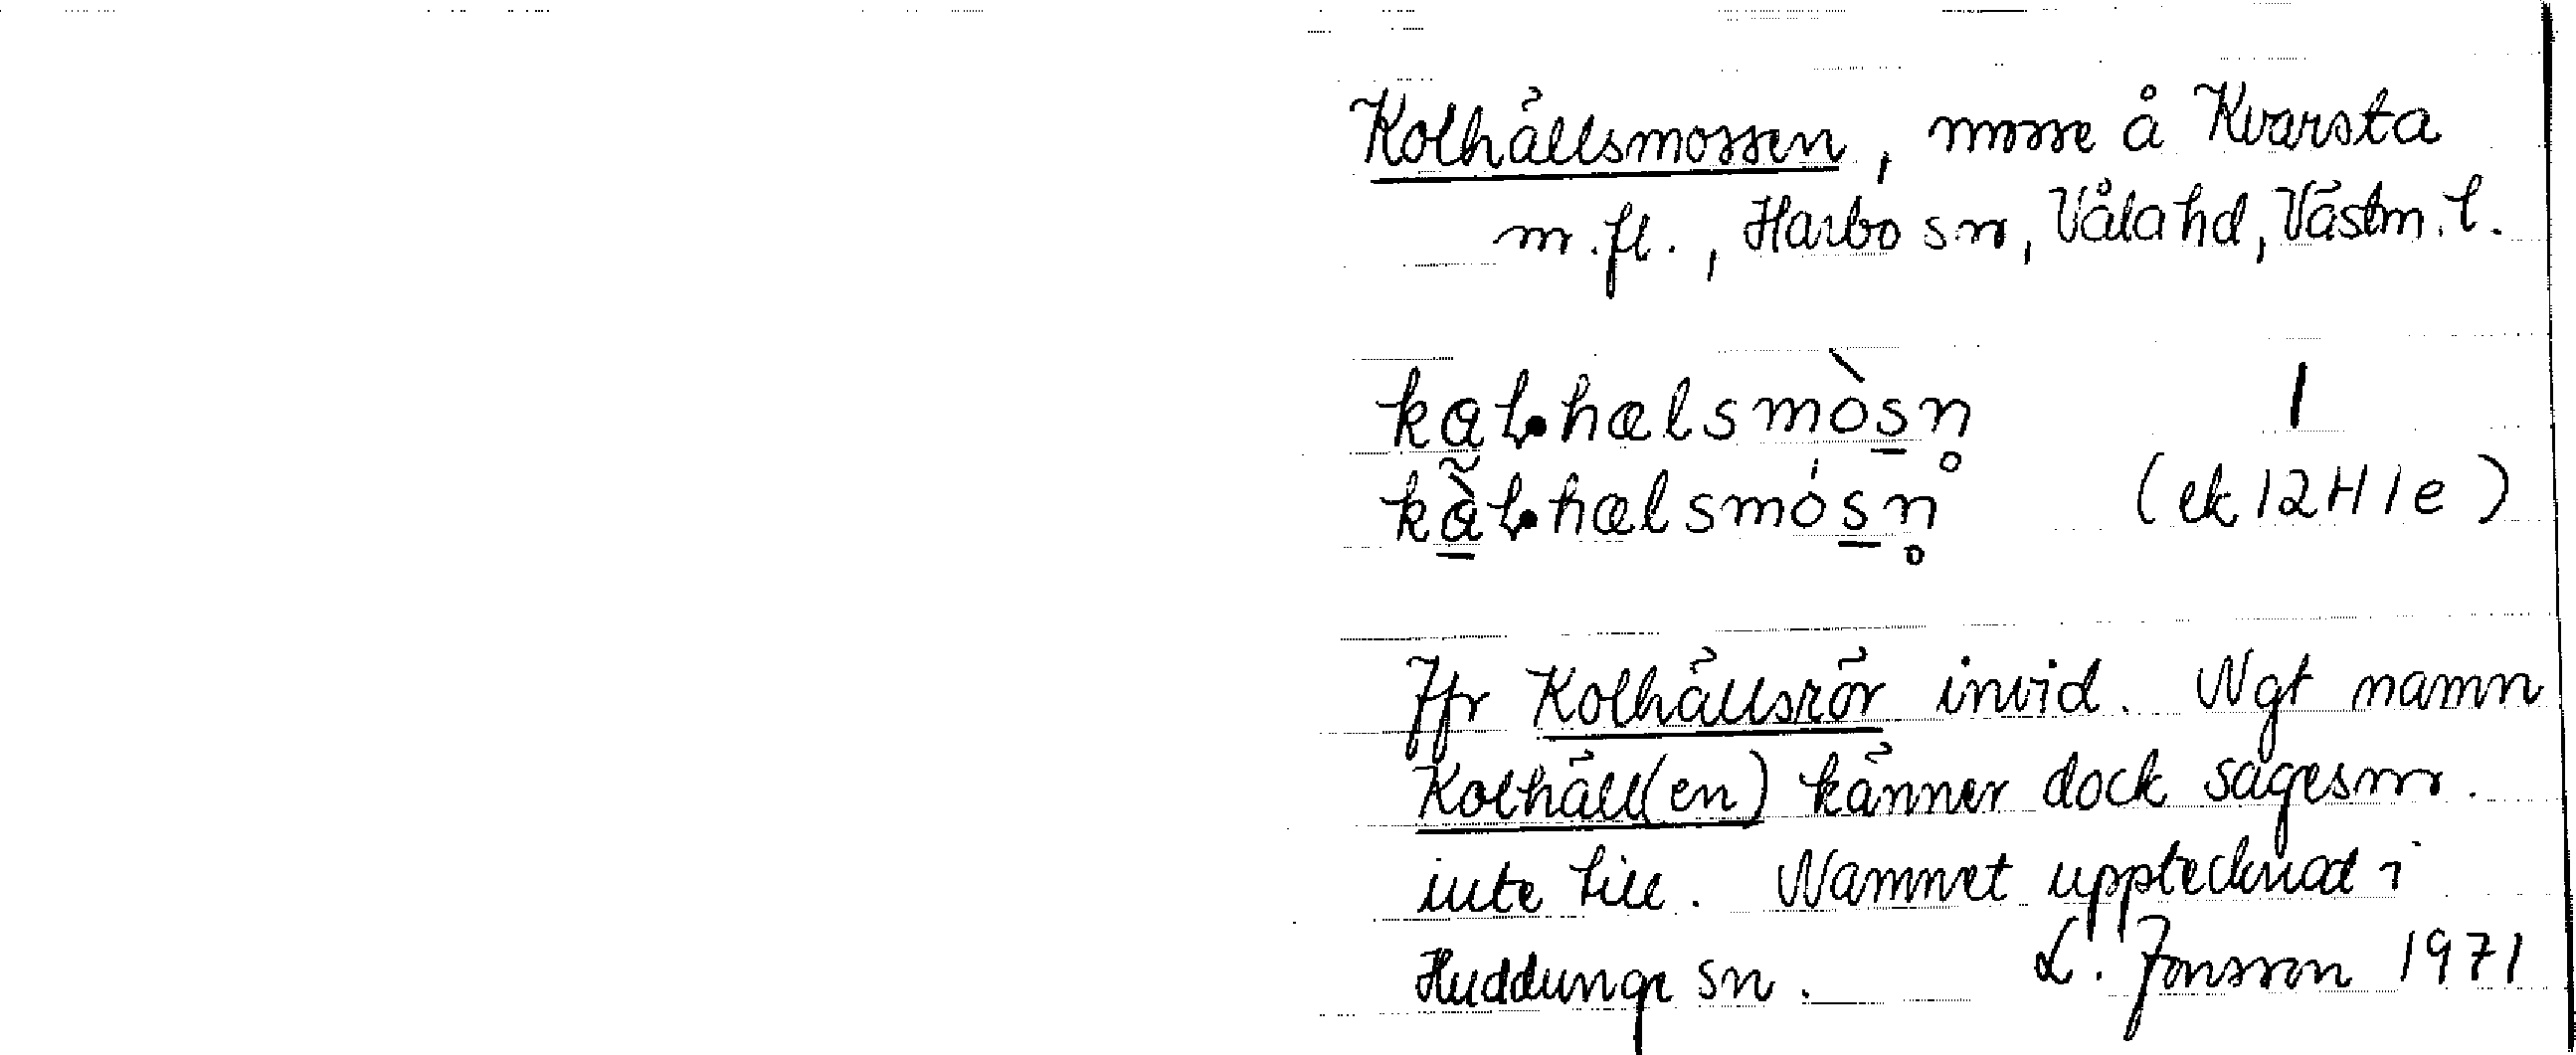 Kolhällsmossen, mosse å Kvarsta
m.fl., Harbo sn, Våla hd, Västm. l.
kaɭ.hælsmòsn̥ 1
kàɭ.hælsmósn̥ (ek 12H1e)
Jfr Kolhällsrör invid. Ngt namn
Kolhäll(en) känner dock sagesm.
inte till. Namnet upptecknat i
Huddunge sn. L. Jonsson 1971